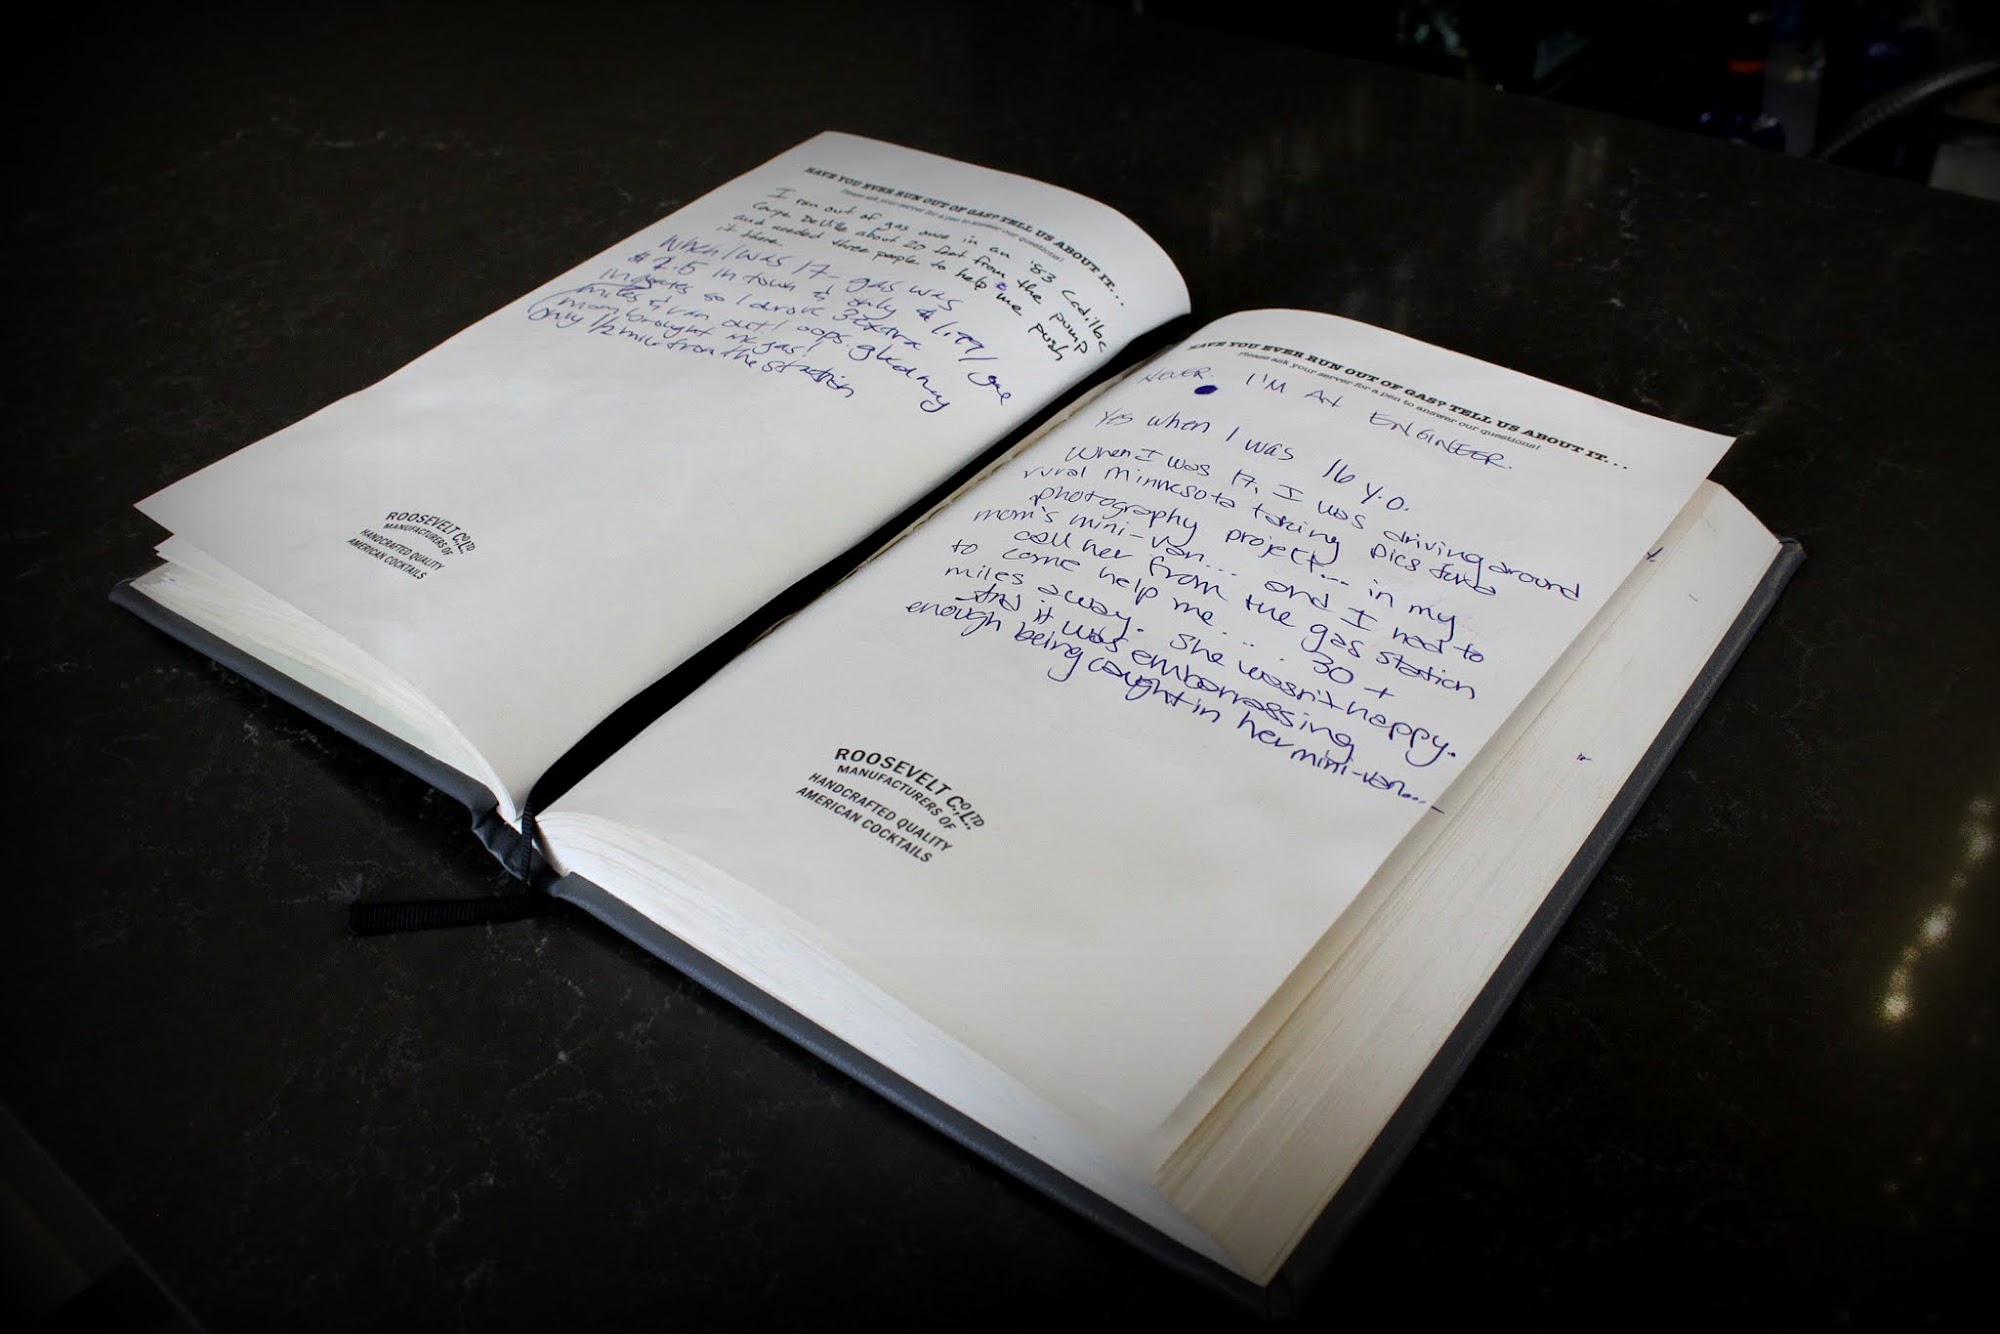 HAVE YOU EVER RUN OUT OF GAS? TELL US ABOUT IT...
Please ask your server for a pen to answer our questions!
I ran out of gas once in an '83 Cadillac
Coupe DeVille about 20 feet from the pump
and needed three people to help me push
it there.
When I was 17- gas was
$2.5 in town & only $1.99/
in so I drove 3 extra
miles & ran out! oops. glad my
mom brought me gas!
Only 1/2 mile from the station
ROOSEVELT CO., LTD
MANUFACTURERS OF
HANDCRAFTED QUALITY
AMERICAN COCKTAILS
HAVE YOU EVER RUN OUT OF GAS? TELL US ABOUT IT...
Please ask your server for a pen to answer our questions!
NEVER. I'M AN ENGINEER.
Yes when I was 16 y.o.
When I was 17, I was driving around
rural Minnesota taking pics for a
photography project... in my
mom's mini-van... and I need to
call her from the gas station
to come help me... 30 +
miles away. She wasn't happy.
And it was embarrassing
enough being caught in her mini-van...
ROOSEVELT CO., LTD
MANUFACTURERS OF
HANDCRAFTED QUALITY
AMERICAN COCKTAILS